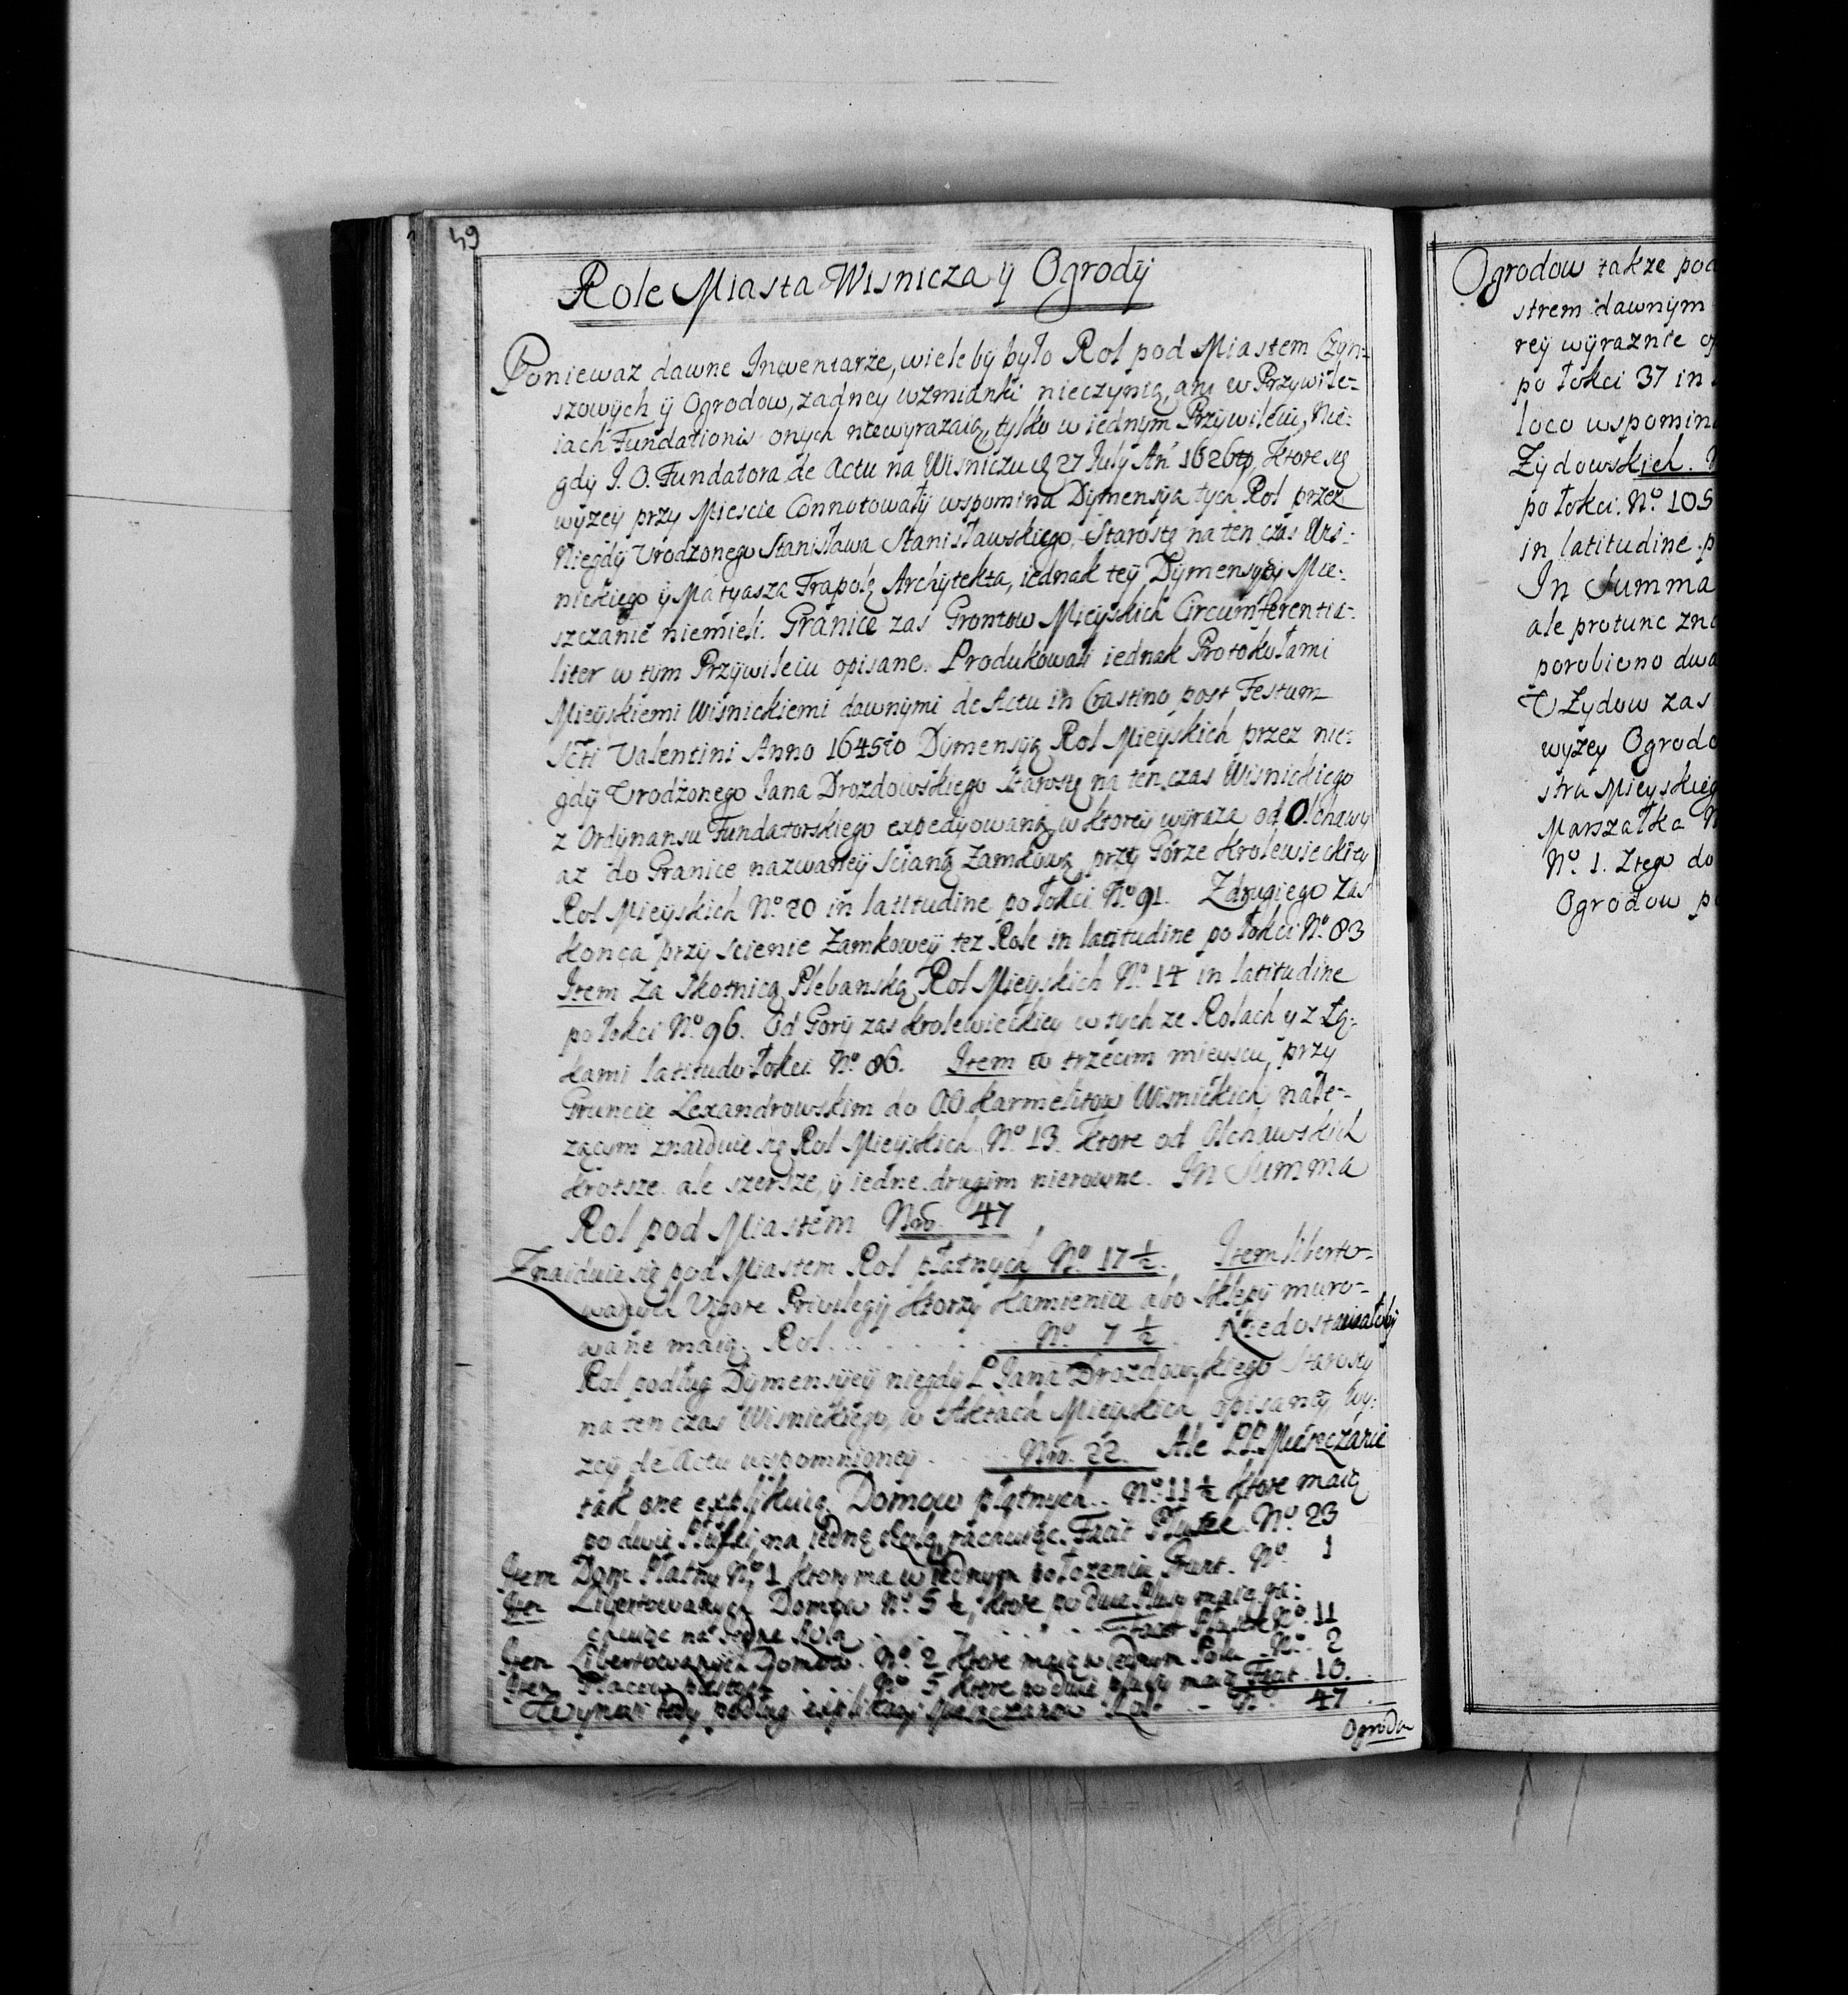 49
Role Miasta Wisnicza ÿ Ogrodÿ
Poniewaz dawne Inwentarze, wiele bÿ było Rol pod Miastem Czÿn=
szowÿch ÿ Ogrodow, zadney wzmianki nieczynią, ani w Przywile=
iach Fundationis onych niewyrazaią, tylko w iednym Przywileiu, Nie:
gdÿ J. O. Fundatora de Actu na Wisniczu 27 July An 1626 Ktore się
wÿzeÿ przy Miescie Connotowałÿ wspomina Dÿmensÿa tych Rol przez
Niegdÿ Urodzonego Stanisława Stanisławskiego Starostę na ten czas Wis:
nickiego ÿ Matyasza Trapolę Archÿtekta, iednak teÿ Dÿmensyÿ Mie:
szczanie niemieli. Granice zas Grontow Mieÿskich Circumferentia:
liter w tÿm Przÿwileiu opisane. Produkowali iednak Protokułami
Mieÿskiemi Wisnickiemi dawnÿmi de Actu in Crastino post Festum
Scti Valentini Anno 1645to Dÿmensÿą Rol Mieÿskich przez nie:
gdÿ Urodzonego Jana Drozdowskiego Starostę na ten czas Wisnickiego
z Ordÿnansu Fundatorskiego expedÿowaną w ktoreÿ wÿraza od Olchawy
az do Granice nazwaneÿ scianą Zamkową przÿ Gorze Krolewieckieÿ
Rol Mieÿskich No. 20 in latitudine po łokci No. 91. Zdrugiego zas
konca przÿ scienie Zamkoweÿ tez Role in latitudine po łokci No. 83
Item Za Skotnicą Plebanską Rol Mieÿskich No. 14 in latitudine
po łokci No. 96. Od Gorÿ zas Krolewieckiey w tych ze Rolach y z Łą:
kami latitudo łokci No. 86. Item w trzecim mieyscu, przy
Gruncie Lexandrowskim do OO Karmelitow Wisnickich nale=
zącym znaiduie się Rol Mieÿskich No. 13. Ktore od Olchawskich
krotsze ale szersze, ÿ iedne drugim nierowne. In Summa
Rol pod Miastem Nro. 47
Znaiduie się pod Miastem Rol płatnych No. 17 ½. Item liberto=
wanych Vigore Privilegij ktorzy Kamienice abo Sklepÿ muro=
wane maią. Rol . . . . . . . . No. 7 ½. Niedostawałobÿ
Rol podług Dÿmensÿeÿ niegdÿ P. Jana Drozdowskiego Starosty
na ten czas Wisnickiego, w Aktach Mieyskich opisaney, wy:
zeÿ de Actu wspomnioneÿ . . . Nro. 22. Ale PP. Miesczanie
tak one explikuią. Domow płatnych . . No. 11 ½ Ktore maią
po dwie Płuski, na iednę Rolą rachuiąc. Facit Płusek. No. 23
Item Dom Płatny No. 1 ktory ma w iednym położeniu Grunt. No. 1
Item Libertowanych Domow No. 5 ½, ktore po dwie Płusy maią ra:
chuiąc na iednę Rolą . . . . . . . . Facit Płusek No. 11
Item Libertowanÿch Domow. No. 2 Ktore maią w iednym Polu . No. 2
Item Placow pustych . . . . . No. 5 Ktore po dwie płusy maią Facit . 10.
Wynosi tedy podług explikacÿ Miesczanow Rol . . N. 47
Ogrodo
Ogrodow takze pod
strem dawnym
reÿ wÿraznie
po łokci 37 in
loco wspomin
Zÿdowskich.
po łokci. No. 105
in latitudine
In Summa
ale protunc zna
porobiono dwa
U Zydow zas
wyzey Ogrodo
stra Mieyskieg
Marszałka
No. 1. Ztego do
Ogrodow po